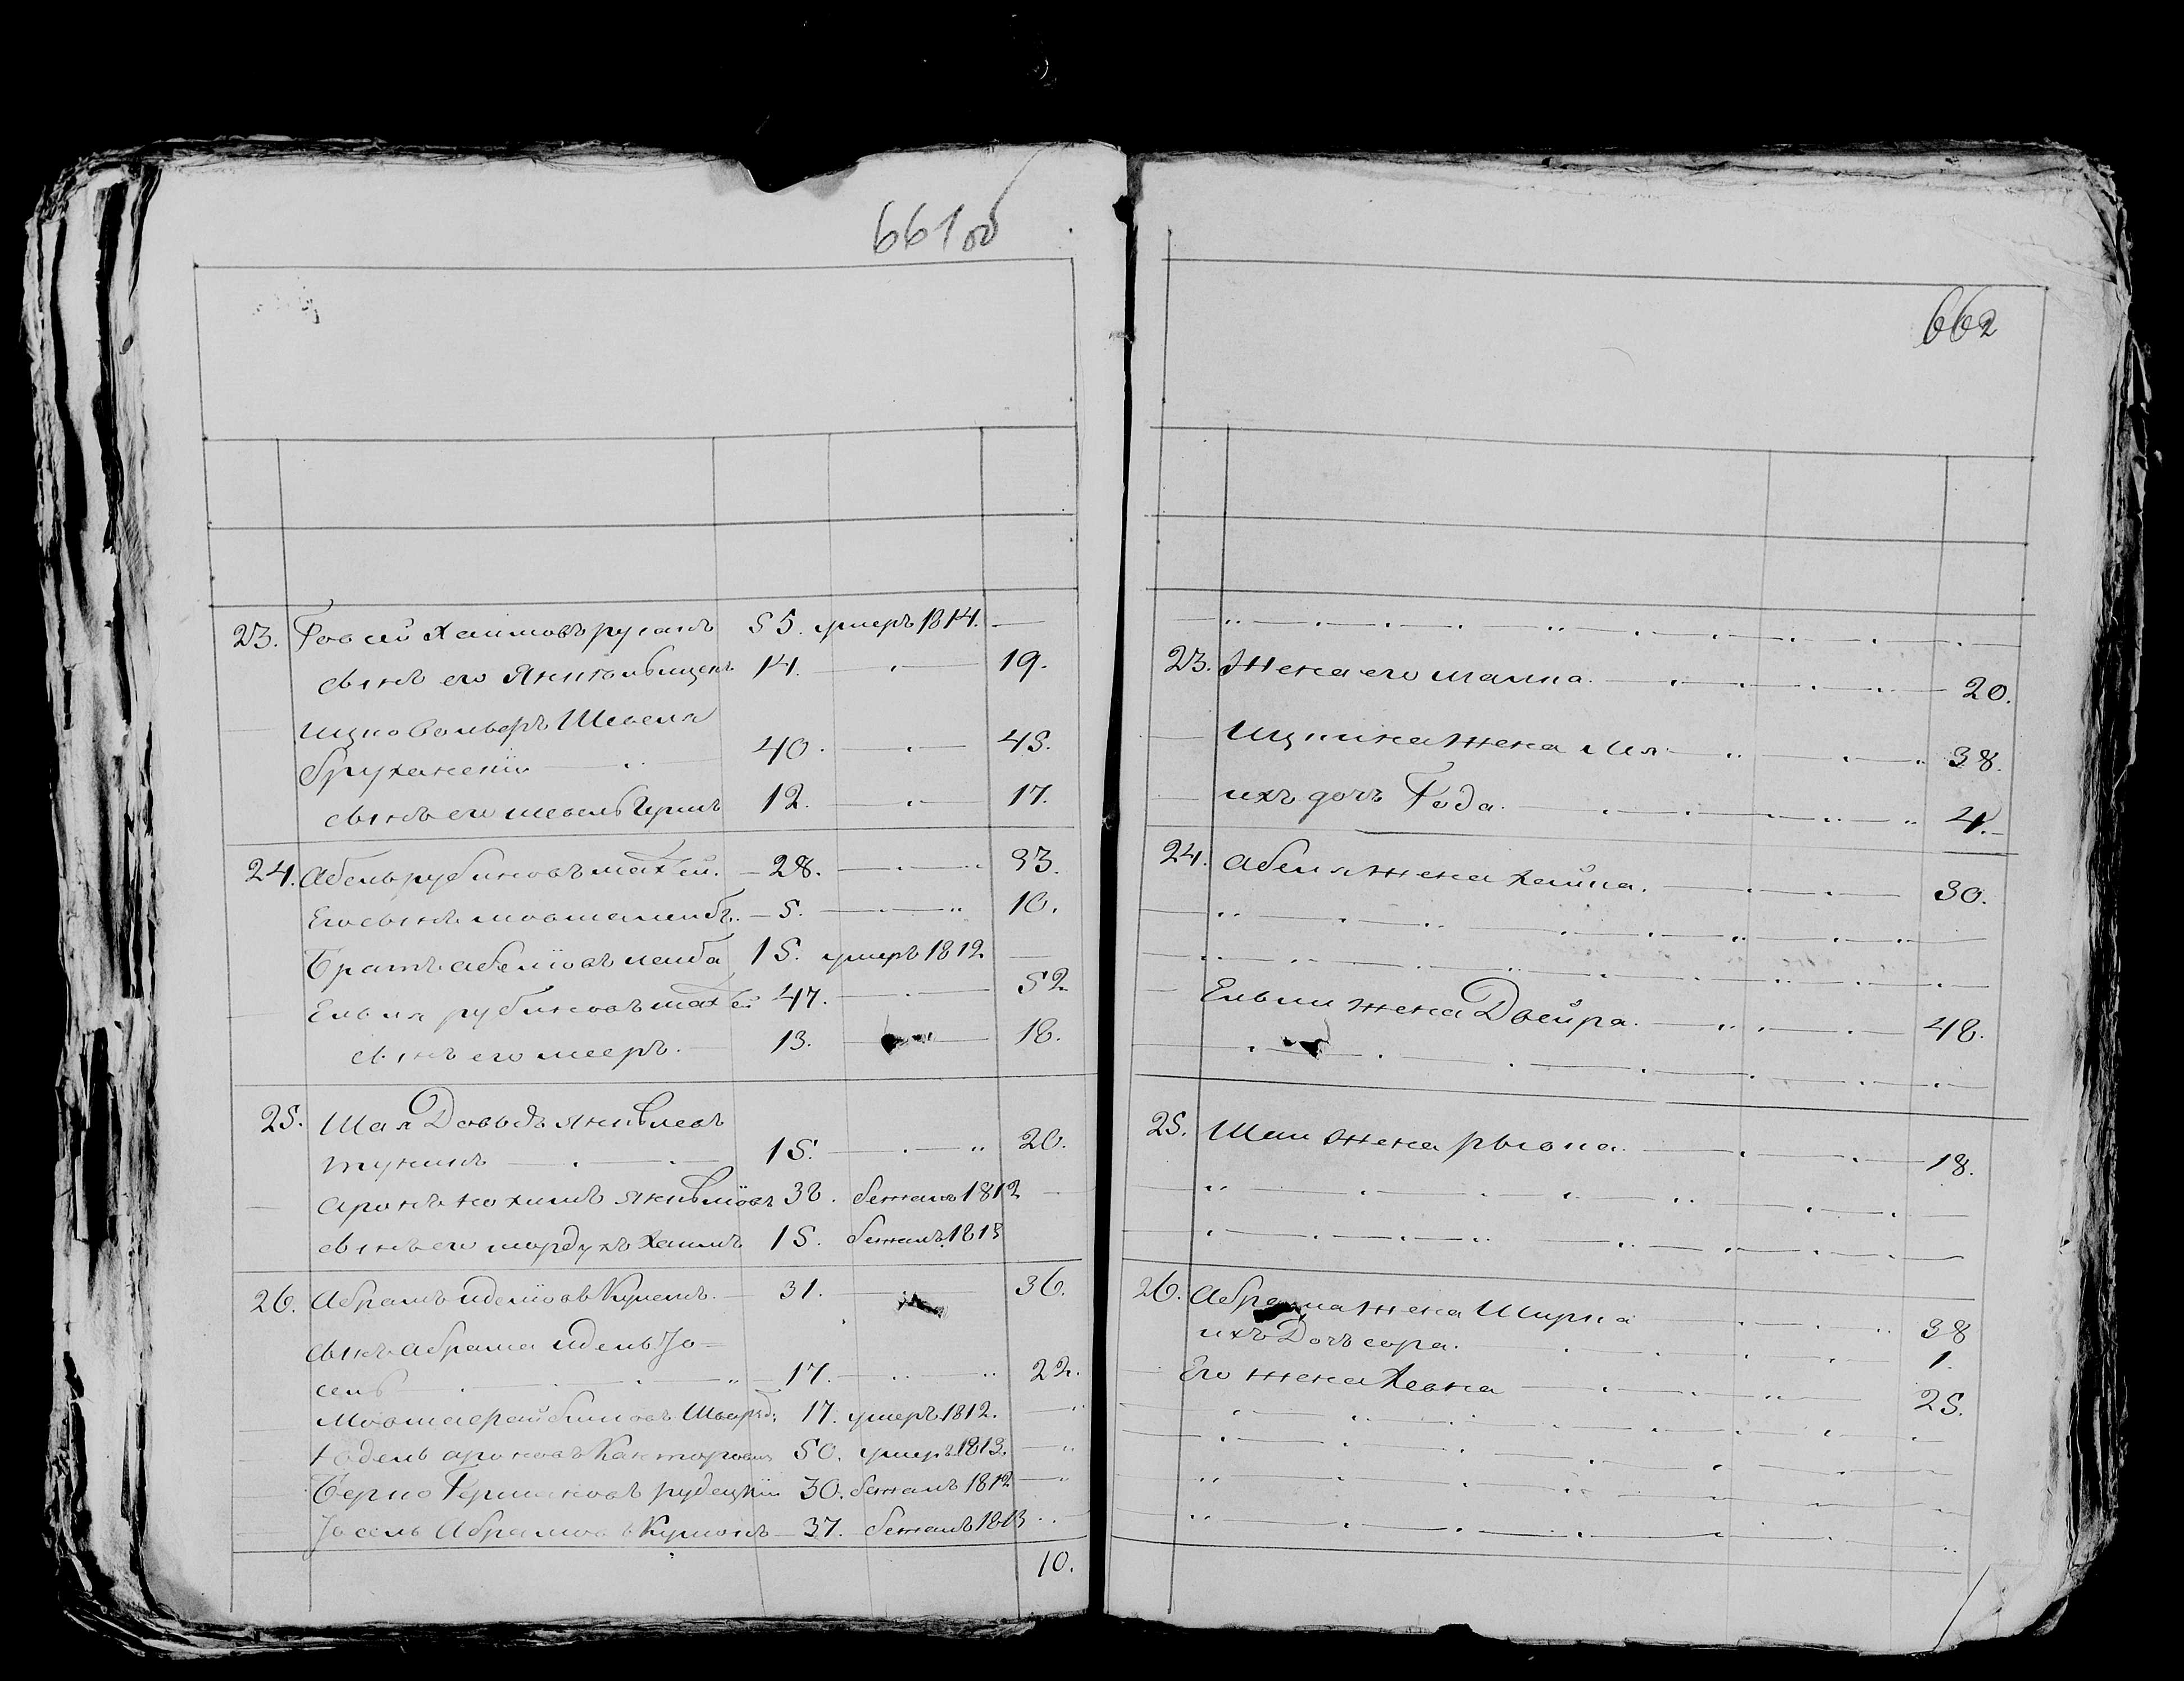 661 об
23. Говсей Хаимовъ русакъ 55. умеръ 1814. —
сынъ его Янкгольицекъ 14. — 19.
Ицко Вольверъ Шевеля
Брухански — 40. — 45.
сынъ его шевель Гершъ 12. — 17.
24. Абель рубиновъ махлей. — 28. — 33.
Его сынъ мовшалейбъ. — 5. — 10.
Братъ абелiовъ лейба 15. умеръ 1812 —
Ельля рубиновъ махлей 47. — 52
сынъ его мееръ. — 13. — 18.
25. Шая Довыдъ янкелевъ
тункикъ — 15. — 20.
аронъ нохимъ янкелiовъ 38. бежалъ 1812 —
сынъ его мордухъ Хаимъ 15. бежалъ 1813
26. Абрамъ иделiовъ Кумень. — 31. 36.
сынъ абрама идель Jо=
сель — 17. — 22.
Мовша ерейбиновъ Шварцъ; 17. умеръ 1812. —
Юдель ароновъ Кантаровичъ 50. умеръ 1813. —
Берко Гершановъ рудецкiи 30. бежалъ 1812 —
Jосель Абрамовъ Кумень — 37. бежалъ 1813
10.
662
23. Жена его малка. — 20.
Ицкина жена Лея — 38.
ихъ дочь Года. — 4.
24. абеля жена хайка. — 30.
Ельи жена Двейра. — 48.
25. Шаи жена рывка. — 18.
26. Абрама жена Ширка 38
ихъ Дочь сора. — 1.
Его жена Хевка — 25.